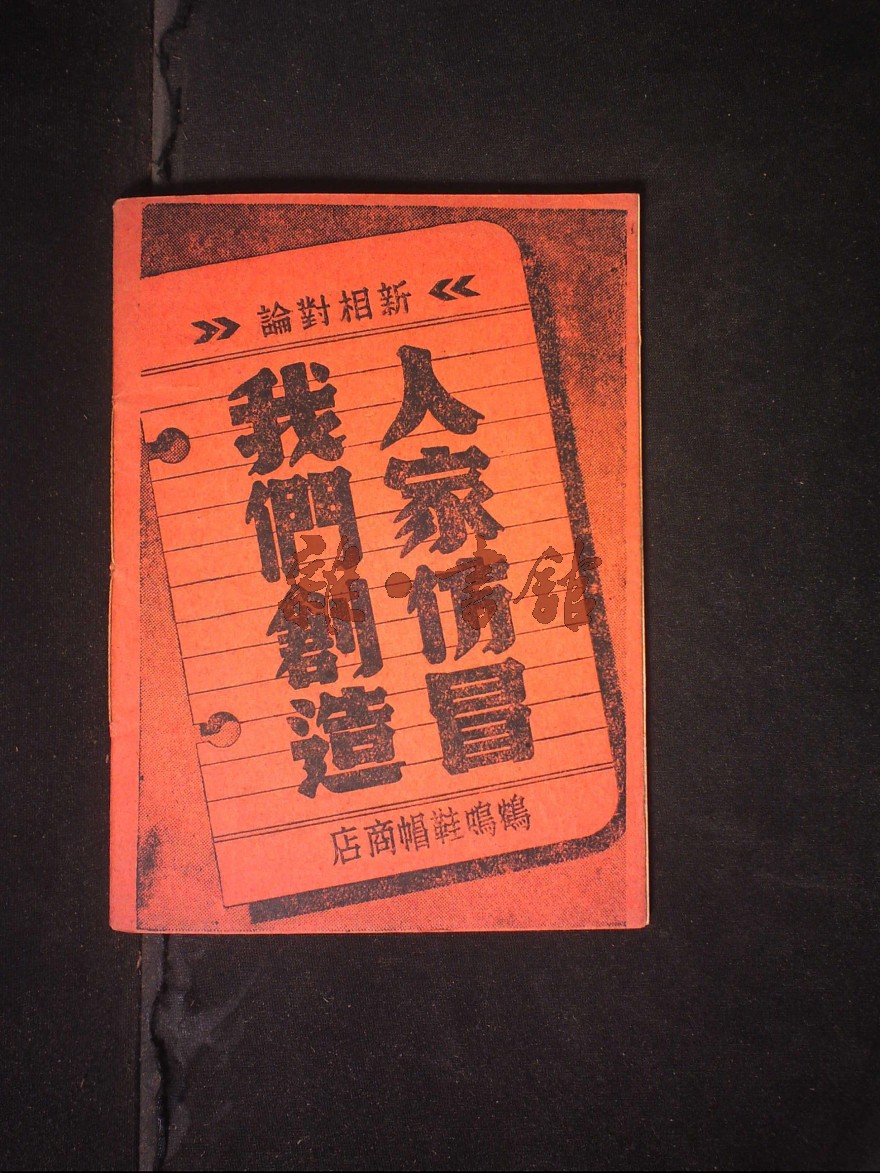 新相對論
人家仿冒
我們創造
鞋帽商店
雜·書館